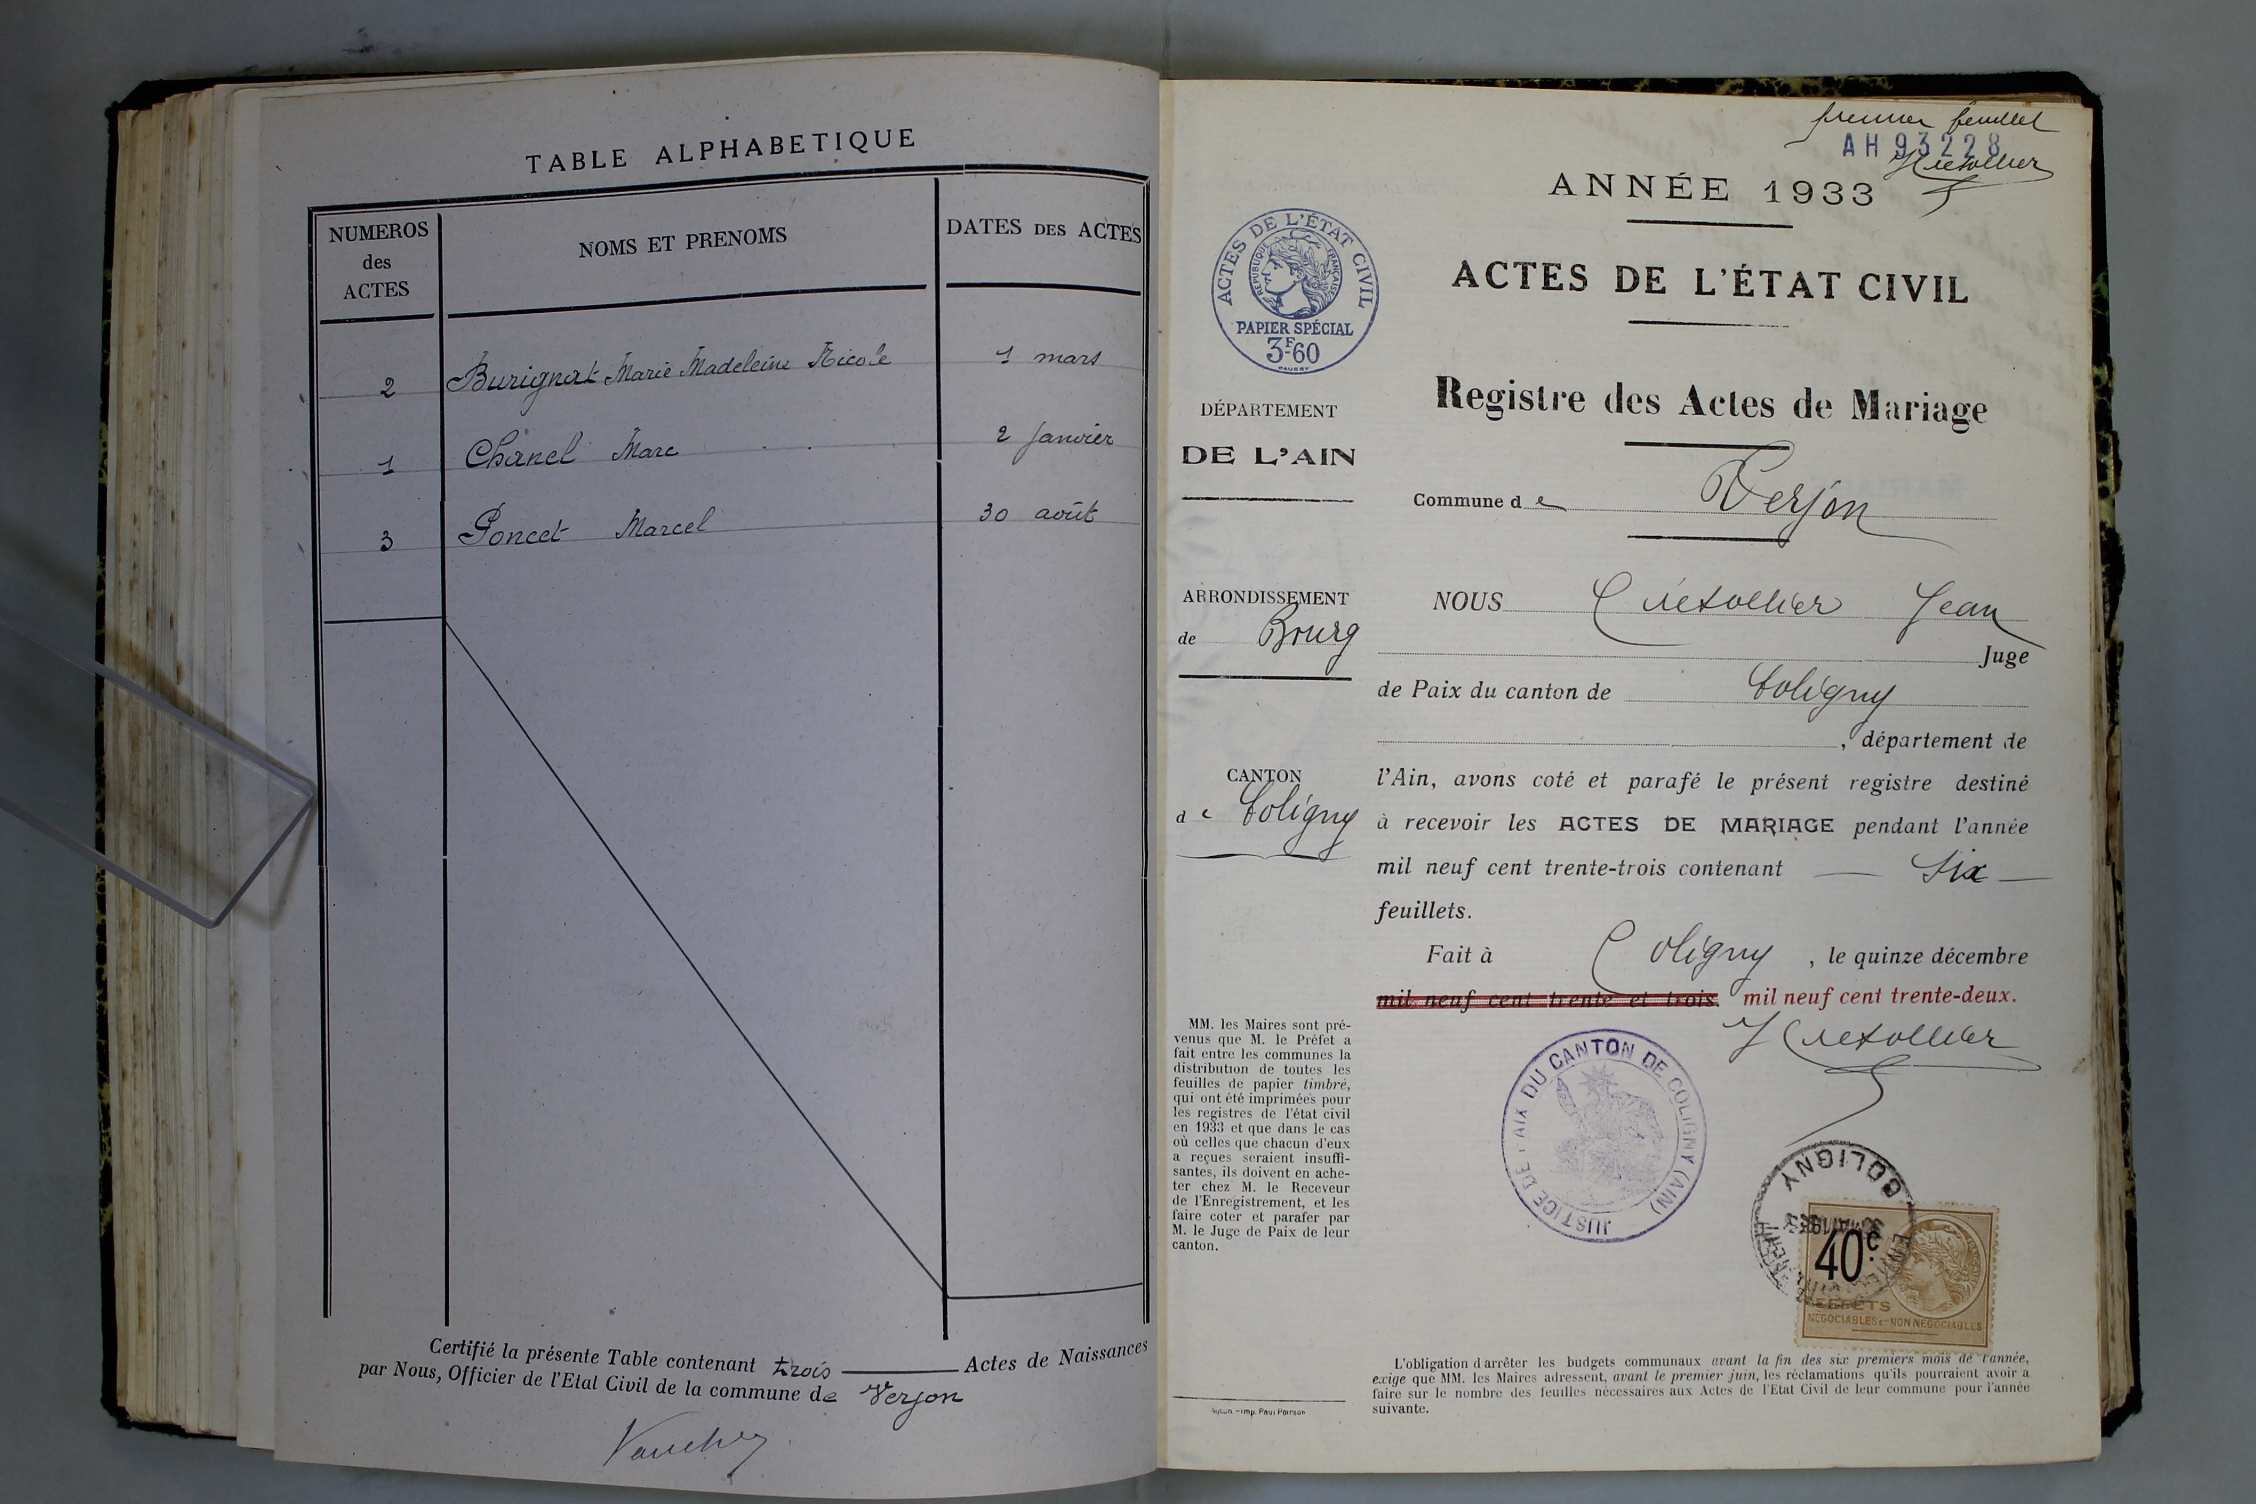 TABLE ALPHABETIQUE
NUMEROS
des
ACTES
NOMS ET PRENOMS
DATES DES ACTES
2 Burignat Marie Madeleine Nicole 1 mars
1 Chanel Marc 2 Janvier
3 Poncet Marcel 30 août
Certifié la présente Table contenant trois Actes de Naissances
par Nous, Officier de l'Etat Civil de la commune de Verjon
premier feuillet
AH 93228
ANNÉE 1933
ACTES DE L'ÉTAT CIVIL
RÉPUBLIQUE FRANÇAISE
PAPIER SPÉCIAL
3F60
ACTES DE L'ÉTAT CIVIL
Registre des Actes de Mariage
DÉPARTEMENT
DE L'AIN
Commune de Verjon
ARRONDISSEMENT
de Bourg
CANTON
de Coligny
NOUS Cretollier Jean
Juge
de Paix du canton de Coligny
, département de
l'Ain, avons coté et parafé le présent registre destiné
à recevoir les ACTES DE MARIAGE pendant l'année
mil neuf cent trente-trois contenant — six —
feuillets.
Fait à Coligny, le quinze décembre
mil neuf cent trente et trois. mil neuf cent trente-deux.
JCretollier
MM. les Maires sont pré-
venus que M. le Préfet a
fait entre les communes la
distribution de toutes les
feuilles de papier timbré,
qui ont été imprimées pour
les registres de l'état civil
en 1933 et que dans le cas
où celles que chacun d'eux
a reçues seraient insuffi-
santes, ils doivent en ache-
ter chez M. le Receveur
de l'Enregistrement, et les
faire coter et parafer par
M. le Juge de Paix de leur
canton.
JUSTICE DE PAIX DU CANTON DE COLIGNY (AIN)
COLIGNY
40c.
EFFETS
NÉGOCIABLES ET NON NÉGOCIABLES
L'obligation d'arrêter les budgets communaux avant la fin des six premiers mois de l'année,
exige que MM. les Maires adressent, avant le premier juin, les réclamations qu'ils pourraient avoir à
faire sur le nombre des feuilles nécessaires aux Actes de l'Etat Civil de leur commune pour l'année
suivante.